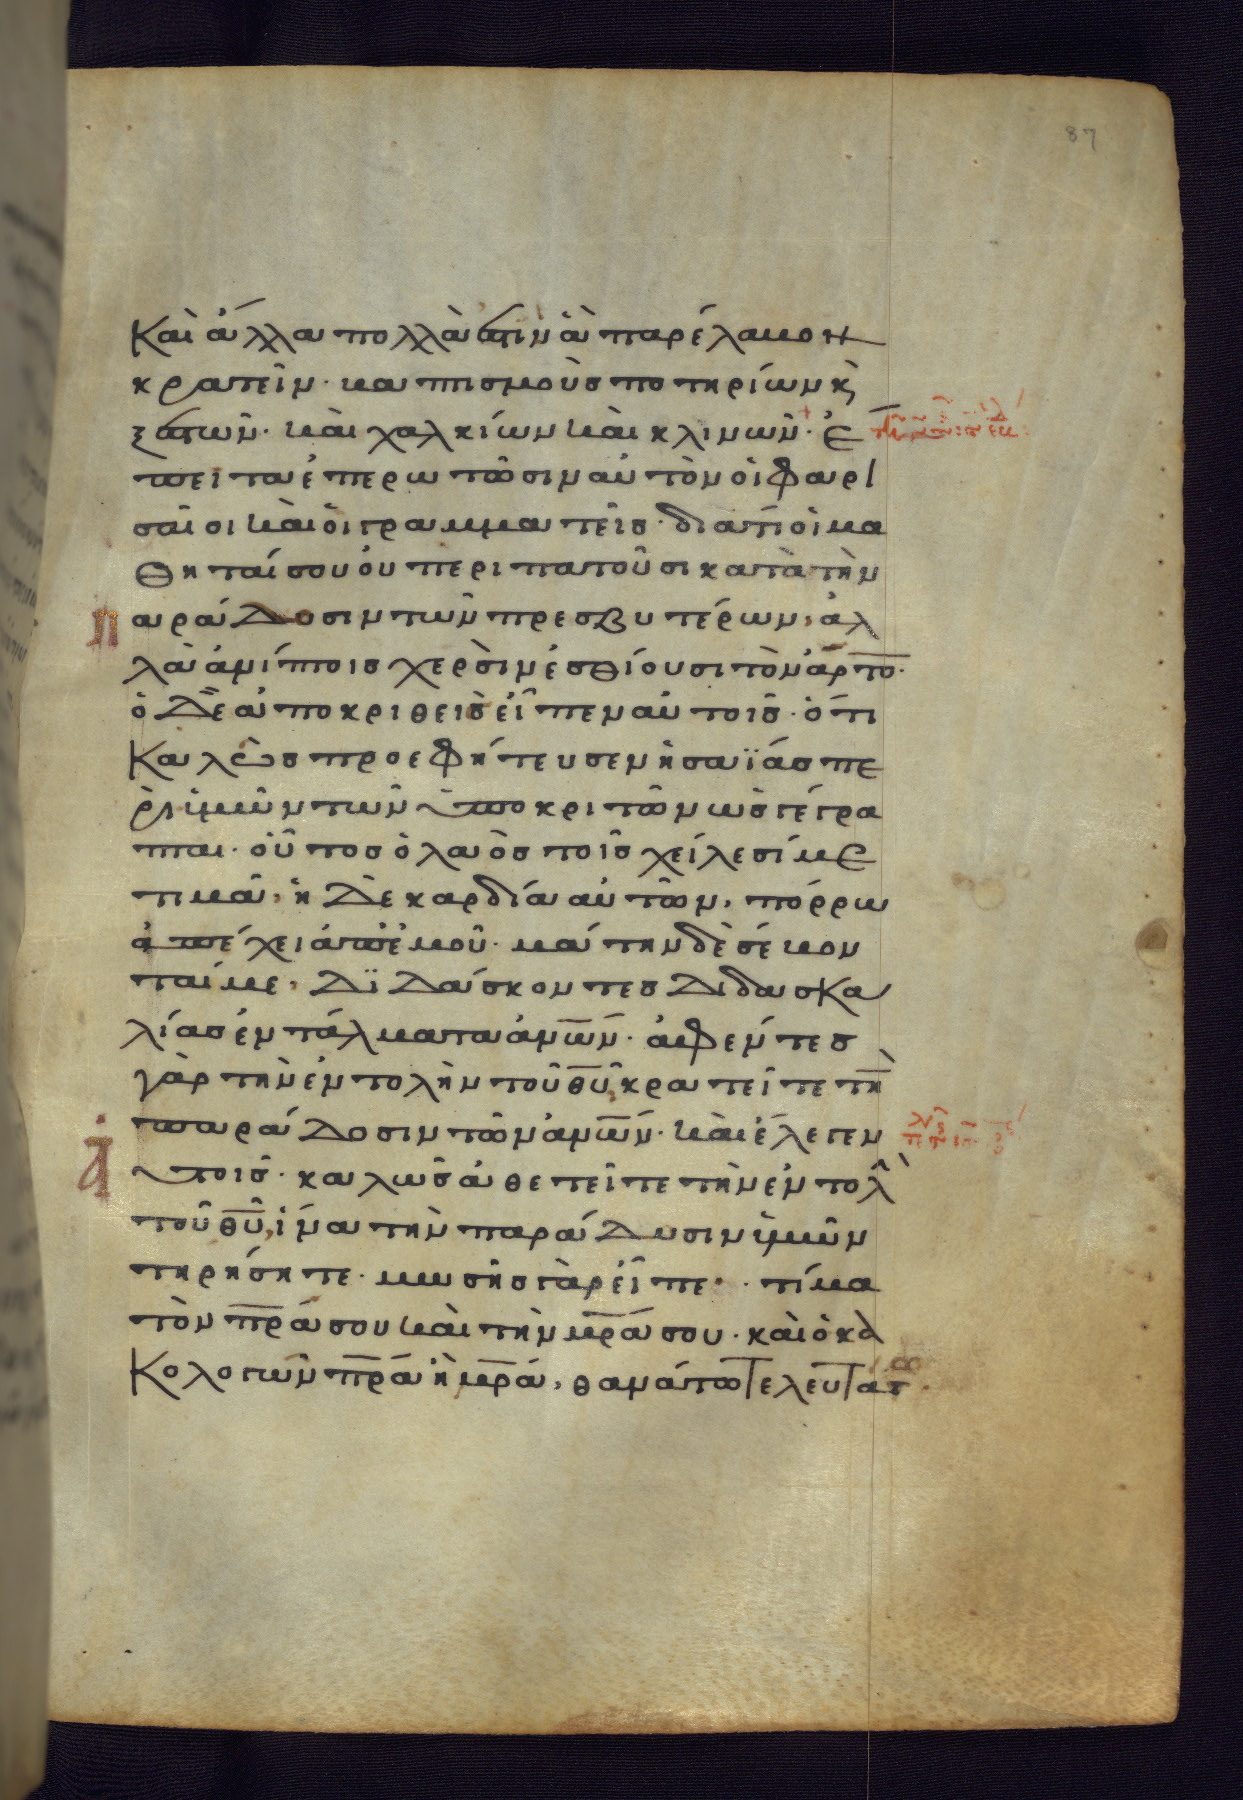 87
Καὶ ἄλλα πολλά ἐστιν ἃ παρέλαβον
κρατεῖν· βαπτισμοὺς ποτηρίων κ̀
ξεστῶν· καὶ χαλκίων καὶ κλινῶν· ἔ
πειτα ἐπερωτῶσιν αὐτὸν οἱ Φαρι
σαῖοι καὶ οἱ γραμματεῖς· διατί οἱ μα
θηταί σου οὐ περιπατοῦσι κατὰ τὴν
παράδοσιν τῶν πρεσβυτέρων, ἀλ
λὰ ἀνίπτοις χερσὶν ἐσθίουσι τὸν ἄρτο̅·
ὁ δὲ ἀποκριθεὶς εἶπεν αὐτοῖς· ὅτι
Καλῶς προεφήτευσεν ἡσαΐας πε
ρὶ ὑμῶν τῶν ὑποκριτῶν ὡς γέγρα
πται· οὗτος ὁ λαὸς τοῖς χείλεσί με
τιμᾶ, ἡ δὲ καρδία αὐτῶν, πόρρω
ἀπέχει ἀπ' ἐμοῦ· μάτην δὲ σέβον
ταί με, διδάσκοντες διδασκα
λίας ἐντάλματα ἀν̅ω̅ν· ἀφέντες
γὰρ τὴν ἐντολὴν τοῦ θ̅υ̅, κρατεῖτε τὴ̅
παράδοσιν τῶν ἀν̅ω̅ν· καὶ ἔλεγεν
αὐτοῖς· καλῶς ἀθετεῖτε τὴν ἐντολὴ
τοῦ θ̅υ̅, ἵνα τὴν παράδοσιν ὑμῶν
τηρήσητε· μωσῆς γὰρ εἶπε· τίμα
τὸν π̅ρ̅α σου καὶ τὴν μ̅ρ̅α σου· καὶ ὁ κα
Κολογῶν π̅ρ̅α ἢ μ̅ρ̅α, θανάτω τελευτάτ